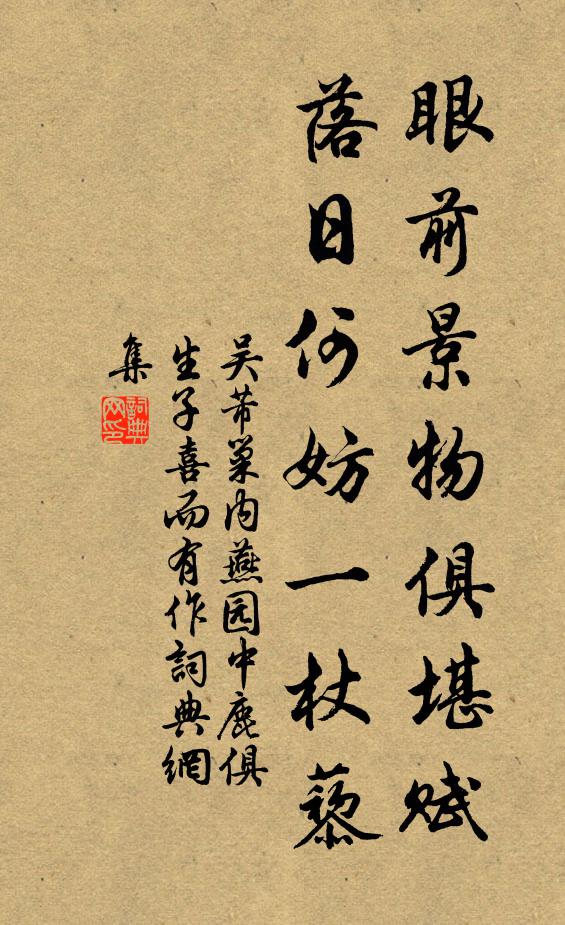 眼前景物俱堪赋
落日何妨一杖藜
吴芾巢内燕园中鹿俱
生子喜而有作詞典網
集
詞典
网印